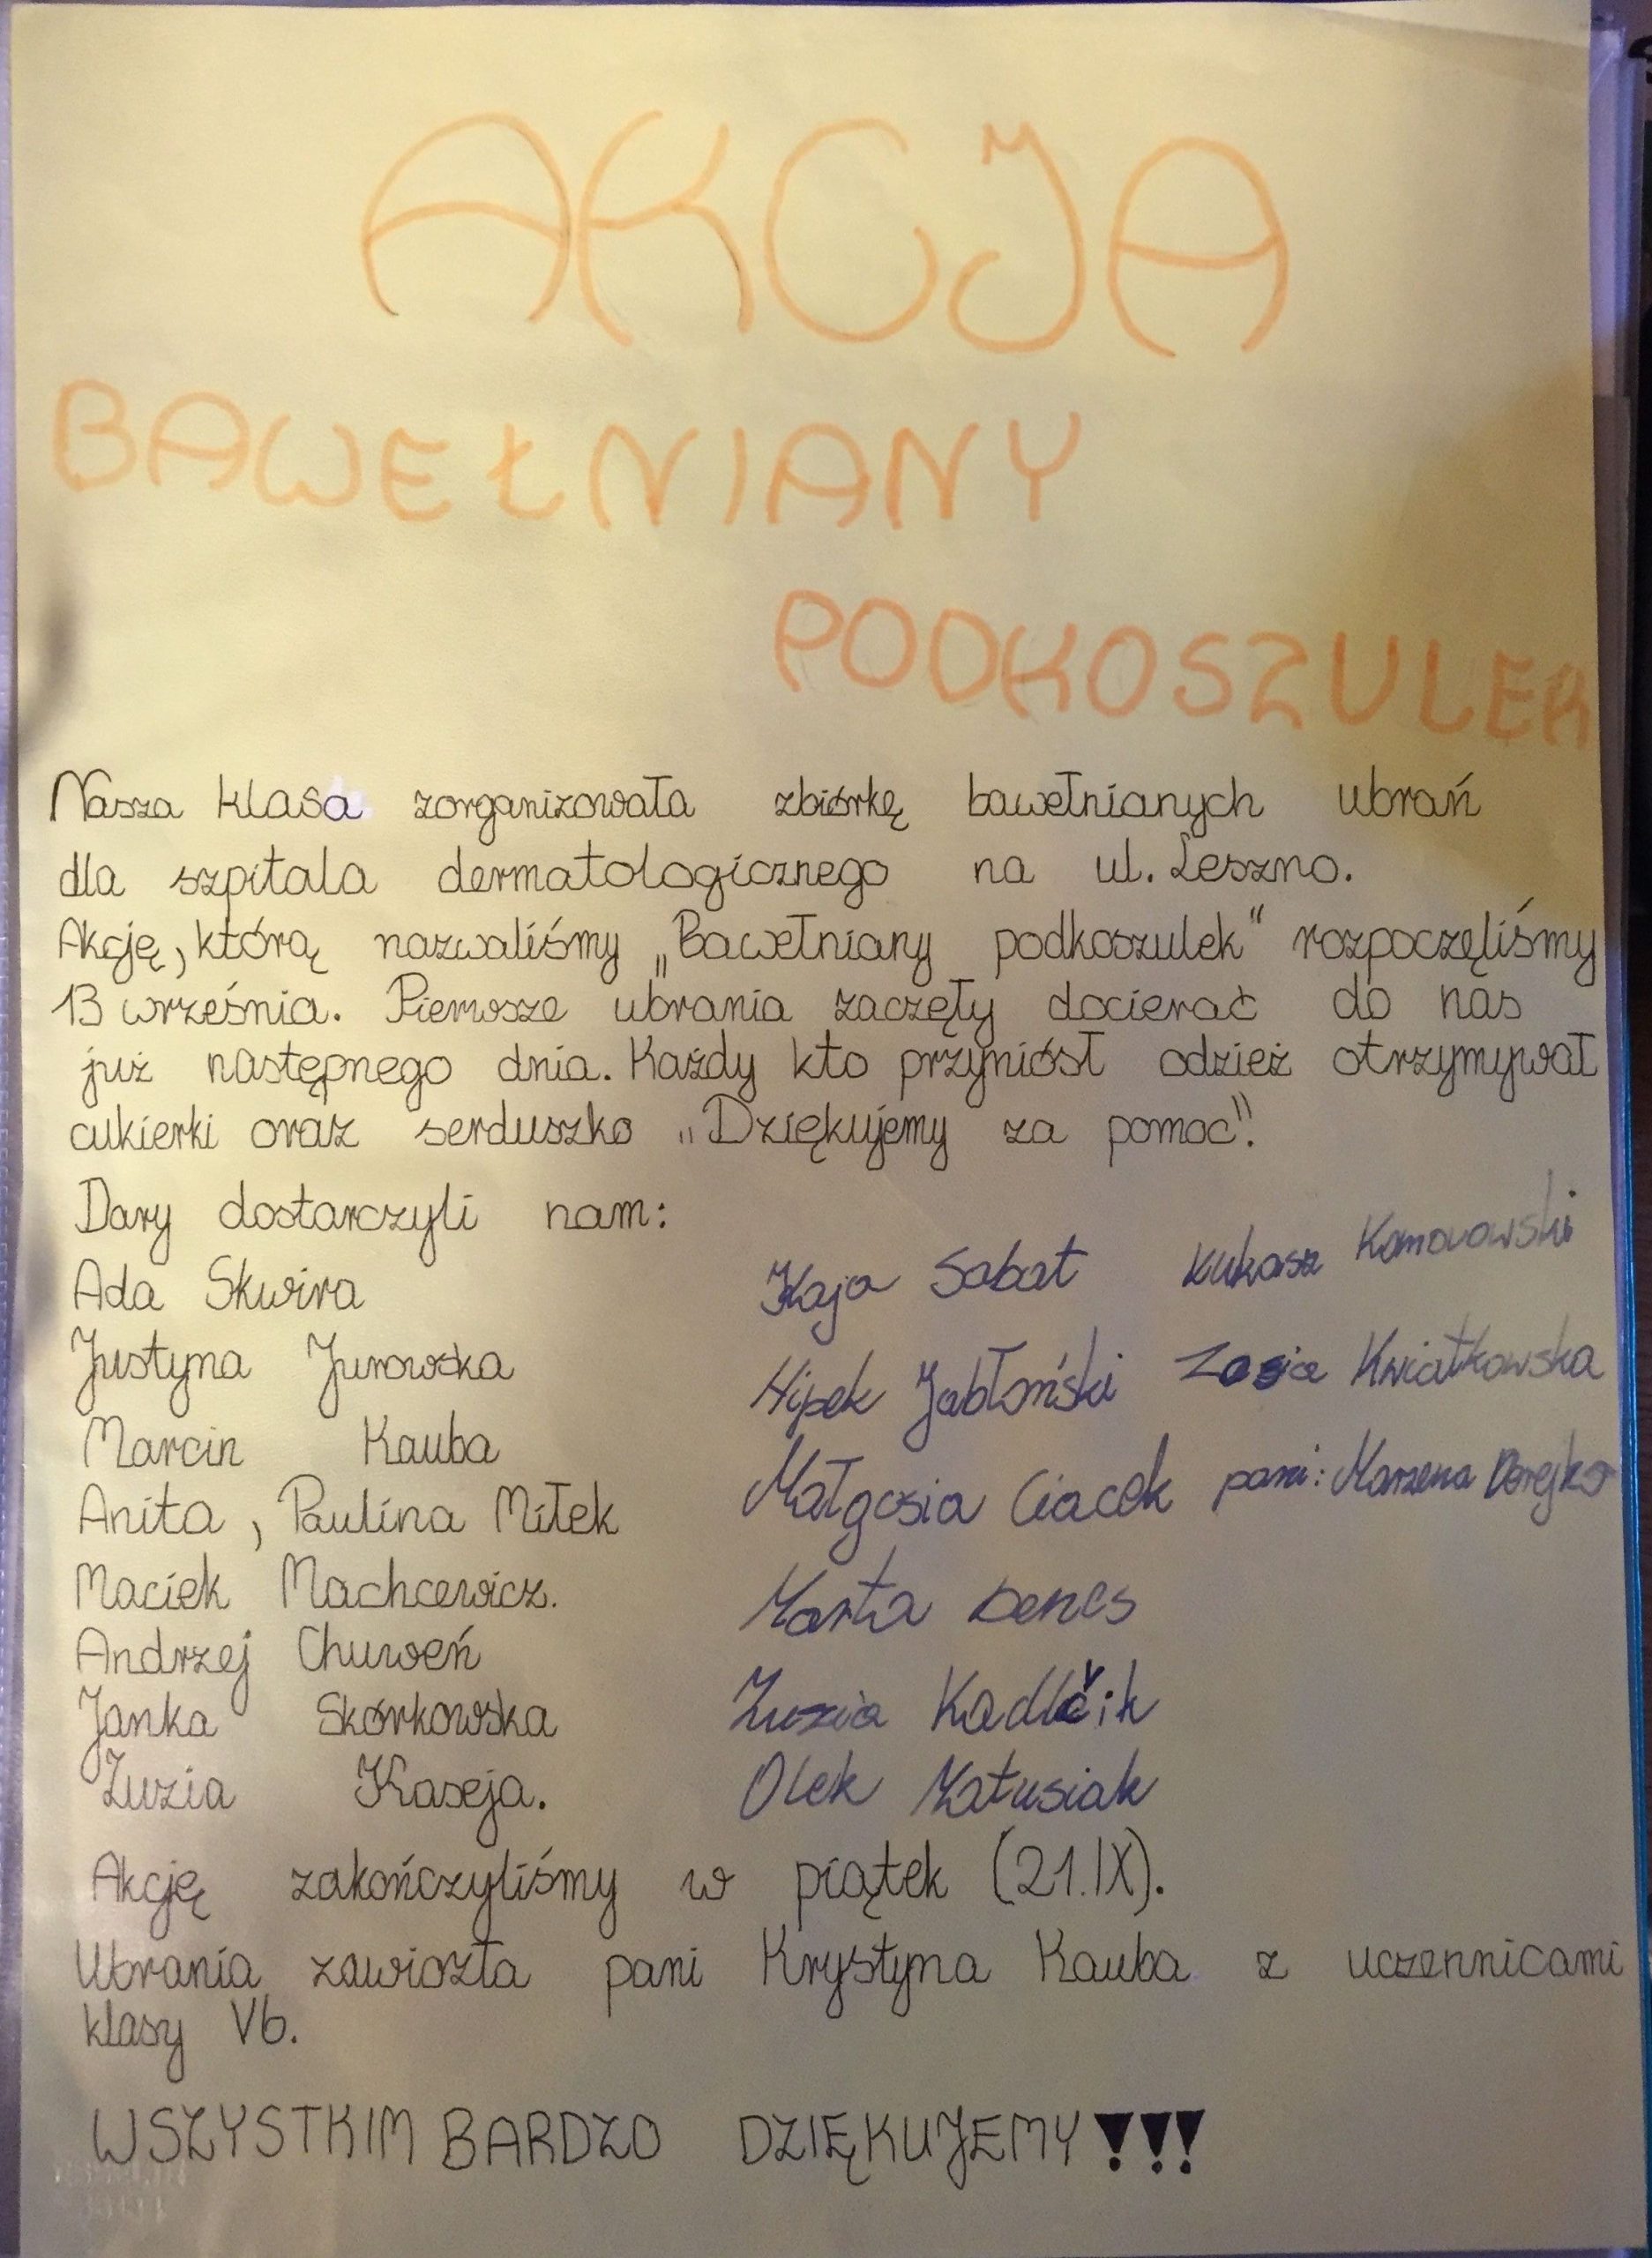 AKCJA
BAWEŁNIANY
PODKOSZULEK
Nasza klasa zorganizowała zbiórkę bawełnianych ubrań
dla szpitala dermatologicznego na ul. Leszno.
Akcję, którą nazwaliśmy „Bawełniany podkoszulek" rozpoczęliśmy
13 września. Pierwsze ubrania zaczęły docierać do nas
już następnego dnia. Każdy kto przyniósł odzież otrzymywał
cukierki oraz serduszko „Dziękujemy za pomoc".
Dary dostarczyli nam:
Ada Skwira
Justyna Jurowska
Marcin Kauba
Anita, Paulina Miłek
Maciek Machcewicz.
Andrzej Chuweń
Janka Skórkowska
Zuzia Kaseja.
Kaja Sabat
Hipek Jabłoński
Małgosia Ciacek
Marta Dencs
Zuzia Kadlčik
Olek Matusiak
Łukasz Komorowski
Zosia Kwiatkowska
pani: Marzena Dorejko
Akcję zakończyliśmy w piątek (21.IX).
Ubrania zawiozła pani Krystyna Kauba z uczennicami
klasy Vb.
WSZYSTKIM BARDZO DZIĘKUJEMY!!!